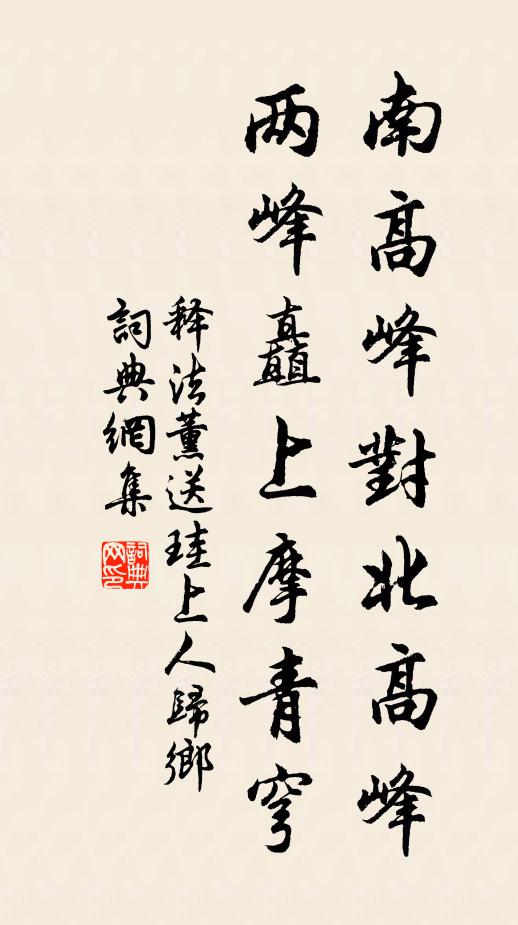 南高峰對北高峰
两峰矗上摩青穹
释法薰送珪上人歸鄉
詞典網集
詞典網印